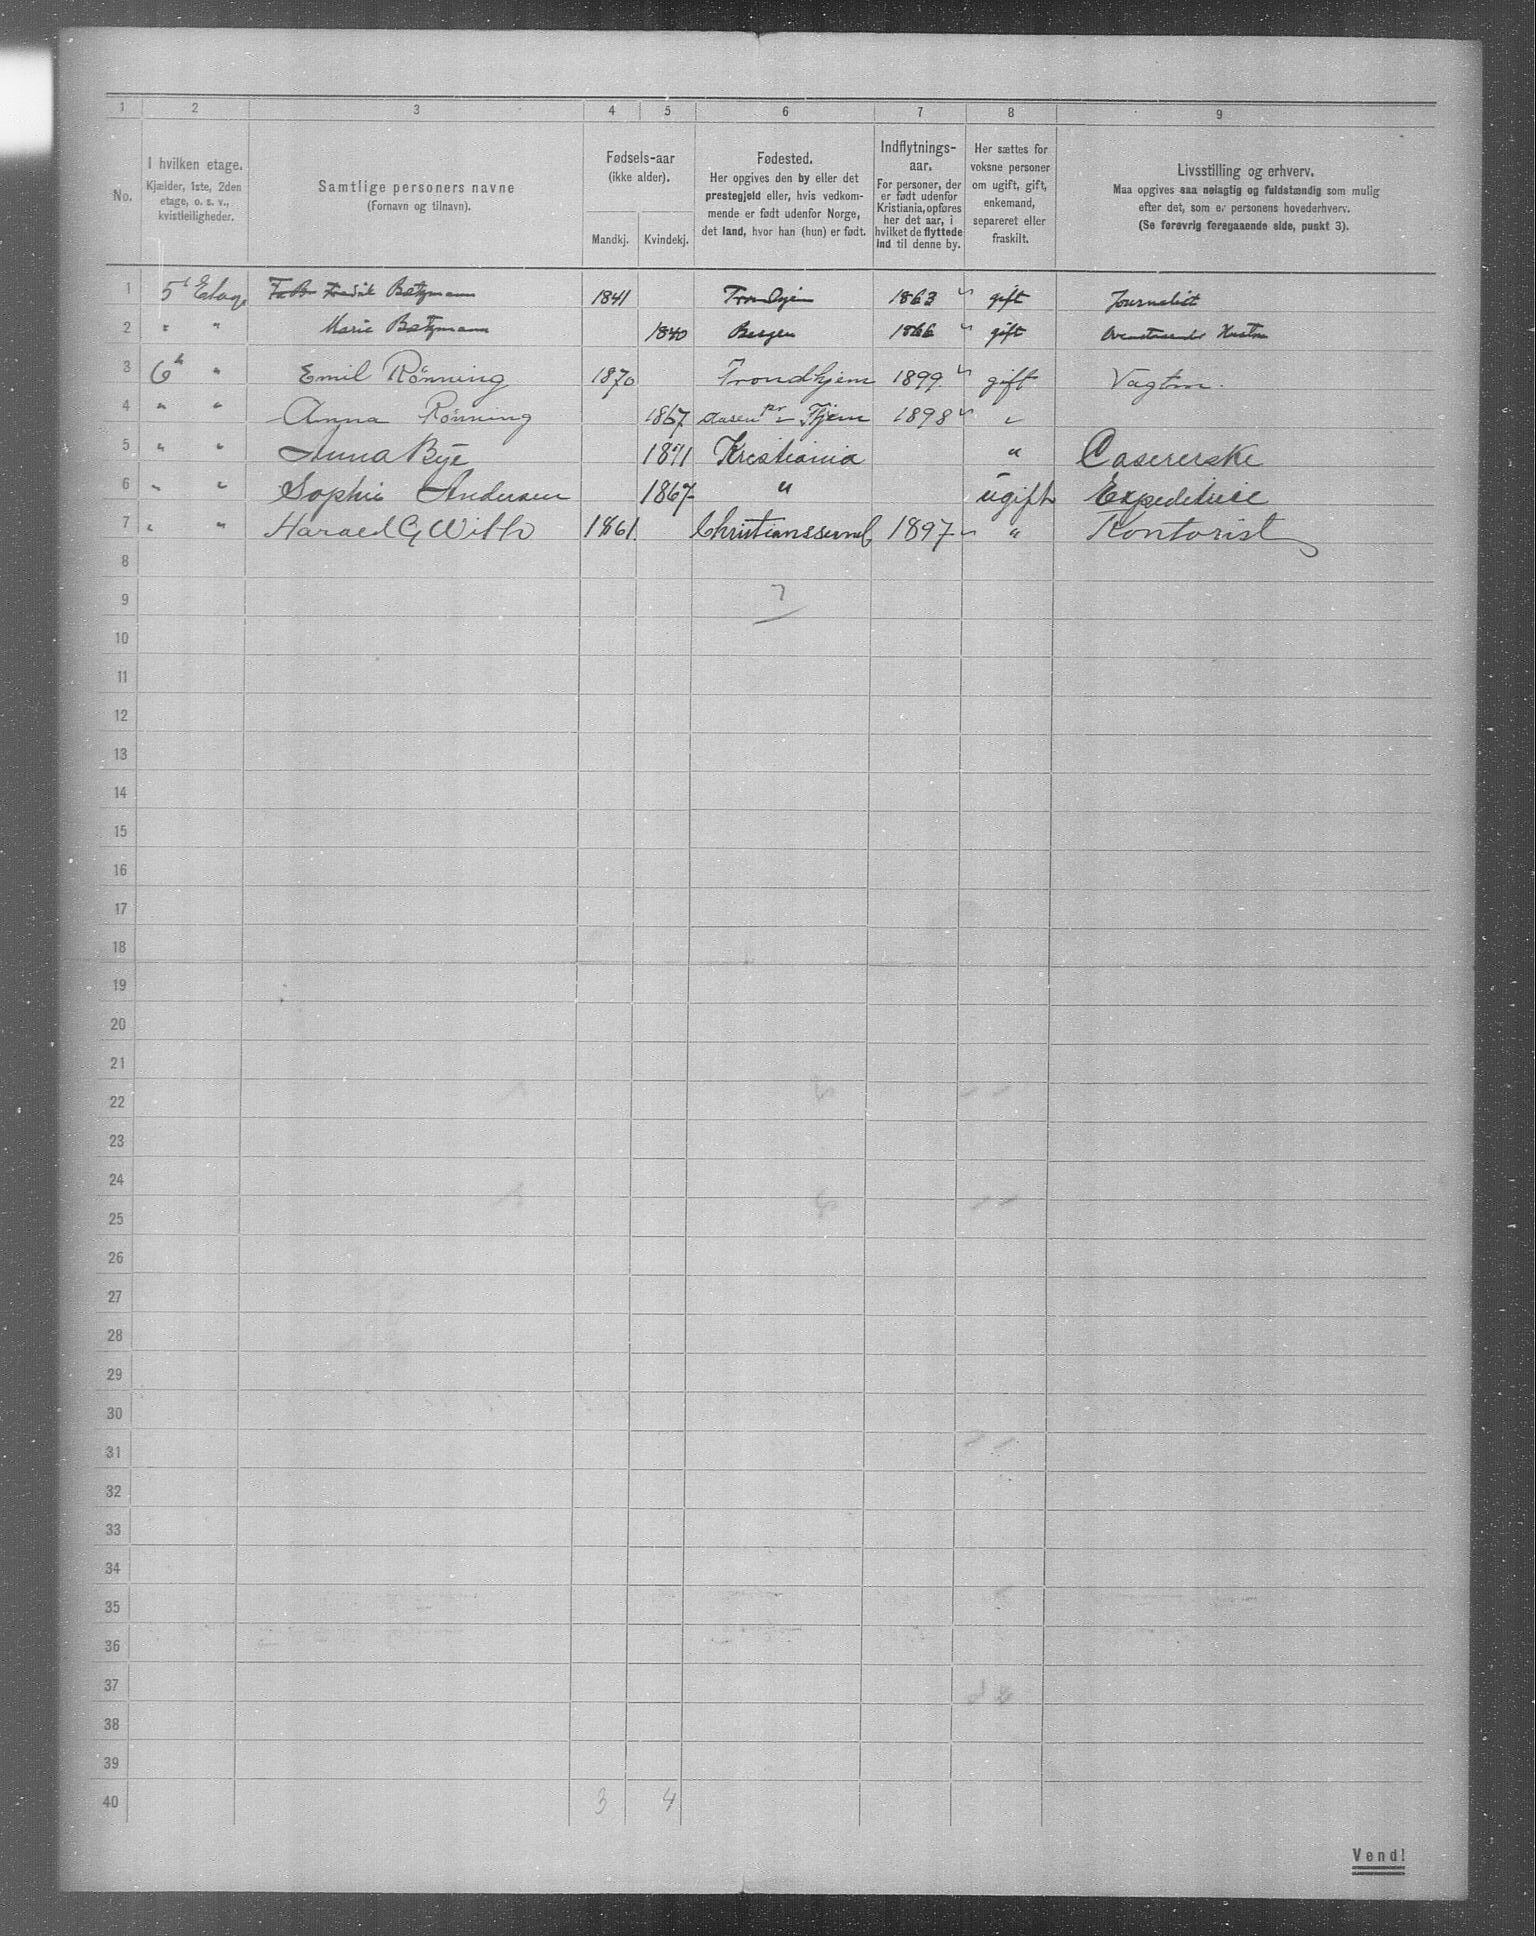 1 2 3 4 5 6 7 8 9
No.
I hvilken etage.
Kjælder, 1ste, 2den
etage, o. s. v.,
kvistleiligheder.
Samtlige personers navne
(Fornavn og tilnavn).
Fødsels-aar
(ikke alder).
Mandkj. Kvindekj.
Fødested.
Her opgives den by eller det
prestegjeld eller, hvis vedkom-
mende er født udenfor Norge,
det land, hvor han (hun) er født.
Indflytnings-
aar.
For personer, der
er født udenfor
Kristiania, opføres
her det aar, i
hvilket de flyttede
ind til denne by.
Her sættes for
voksne personer
om ugift, gift,
enkemand,
separeret eller
fraskilt.
Livsstilling og erhverv.
Maa opgives saa nøiagtig og fuldstændig som mulig
efter det, som er personens hovederhverv.
(Se forøvrig foregaaende side, punkt 3).
1 5t Etage Fredrik Bætzmann 1841 Trondhjem 1863 gift Journalist
2 " " Marie Bætzmann 1840 Bergen 1866 gift
3 6te " Emil Rönning 1870 Trondhjem 1899 gift Vagtm.
4 " " Anna Rönning 1867 Aasen pr Thjem 1898 "
5 " " Anna Bye 1871 Kristiania " Casererske
6 " " Sophie Andersen 1867 " ugift Expeditrise
7 " " Harald G. With 1861 Christianssund 1897 " Kontorist
8
9 7
10
11
12
13
14
15
16
17
18
19
20
21
22
23
24
25
26
27
28
29
30
31
32
33
34
35
36
37
38
39
40 3 4
Vend!